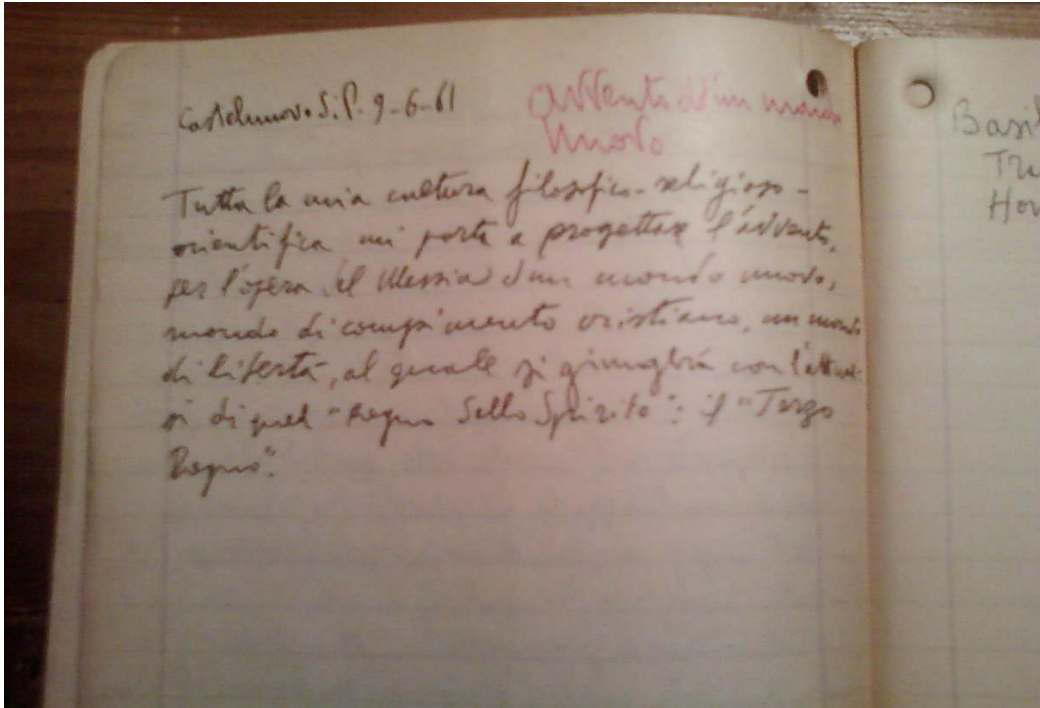 Castelnuovo S.P. 9-6-61
Avvento d'un mondo
nuovo
Tutta la mia cultura filosofico-religioso-
scientifica mi porta a progettare l'avvento,
per l'opera del Messia d'un mondo nuovo,
mondo di compimento cristiano, un mondo
di libertà, al quale si giungerà con l'attuar
si di quel "Regno dello Spirito": il "Terzo
Regno".
Basil
Tru
Hou